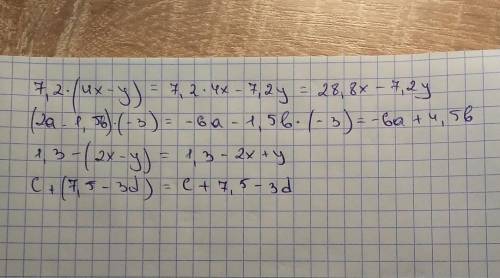 7,2·(4x-y) = 7,2·4x-7,2y = 28,8x-7,2y
(2a-1,5b)·(-3) = -6a-1,5b·(-3) = -6a+4,5b
1,3-(2x-y) = 1,3-2x+y
C+(7,5-3d) = C+7,5-3d